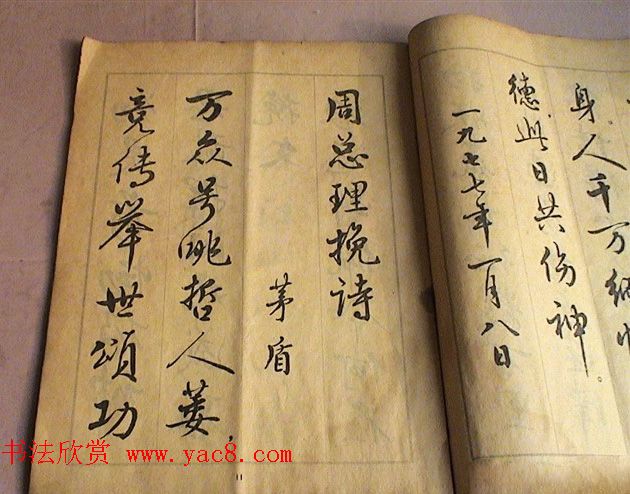 身.人千万
德.此日共伤神。
一九七七年一月八日
周总理挽诗
茅盾
万众号咷哲人萎,
竞传举世颂功
书法欣赏 www.yac8.com